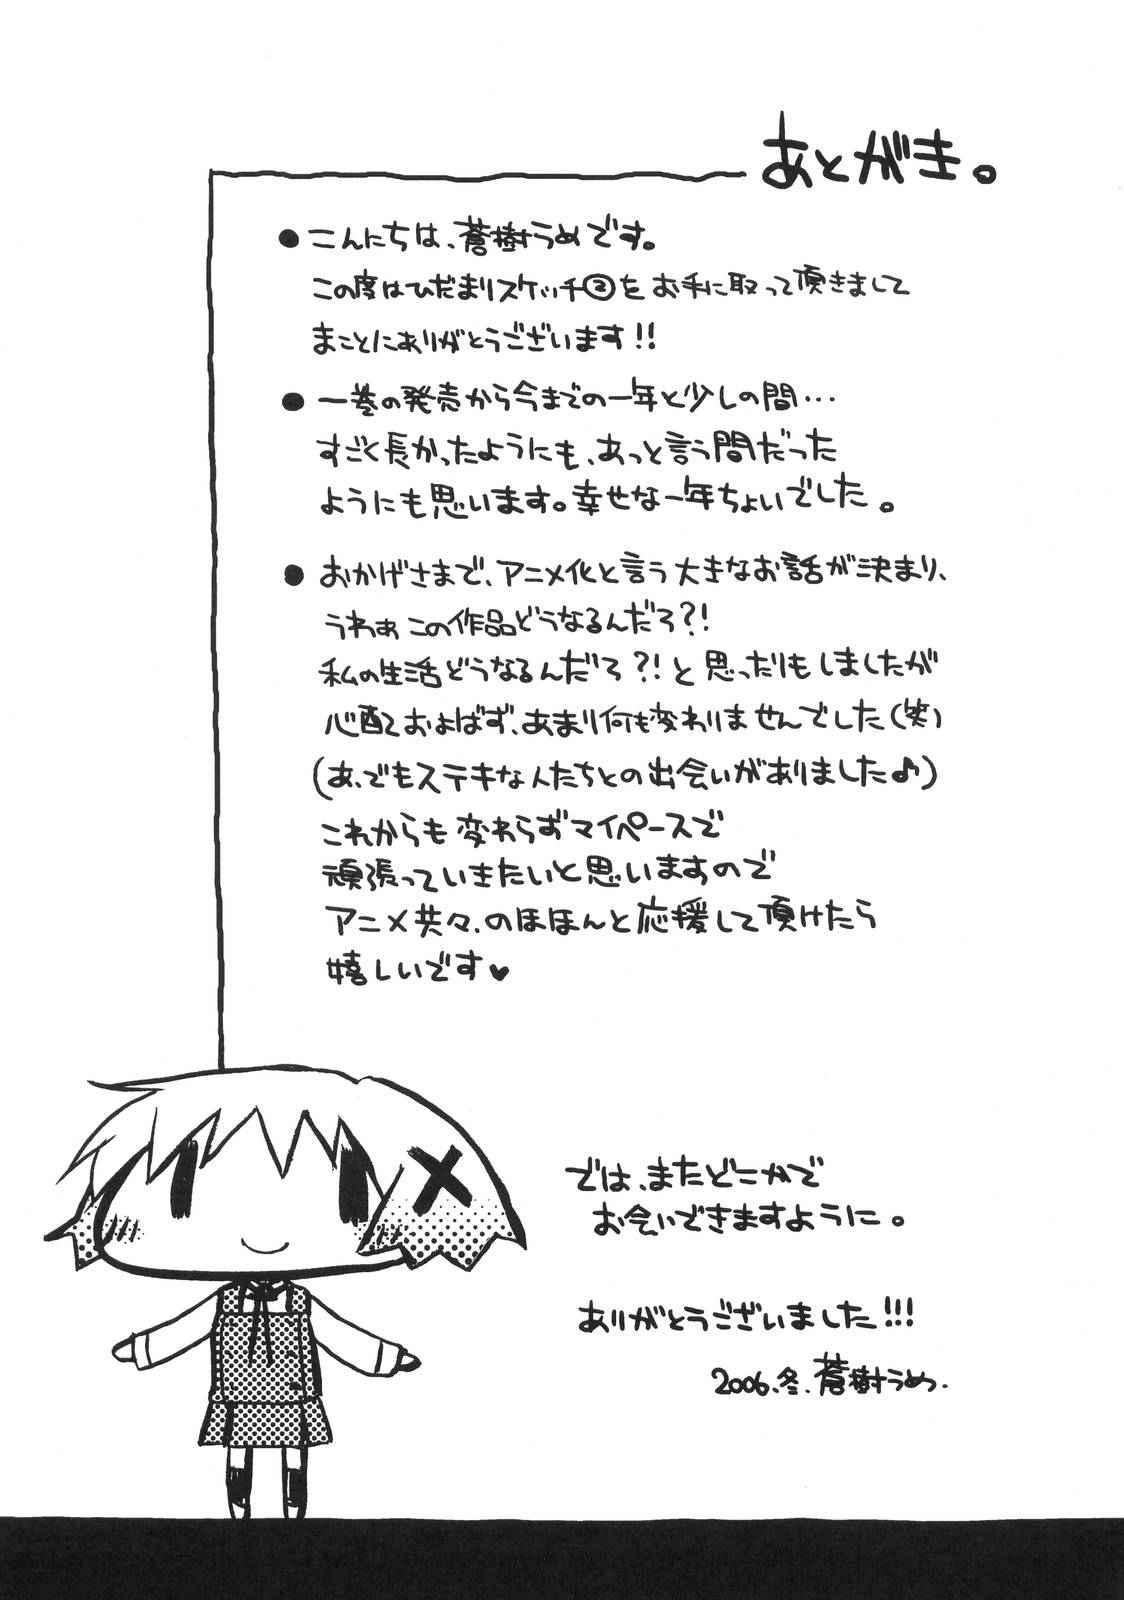 あとがき。
●こんにちは、蒼樹うめです。
この度はひだまりスケッチ②をお手に取って頂きまして
まことにありがとうございます!!
●一巻の発売から今までの一年と少しの間…
すごく長かったようにも、あっと言う間だった
ようにも思います。幸せな一年ちょいでした。
●おかげさまで、アニメ化と言う大きなお話が決まり、
うわぁこの作品どうなるんだろ?!
私の生活どうなるんだろ?!と思ったりもしましたが
心配およばず、あまり何も変わりませんでした(笑)
(あ、でもステキな人たちとの出会いがありました♪)
これからも変わらずマイペースで
頑張っていきたいと思いますので
アニメ共々、のほほんと応援して頂けたら
嬉しいです♥
では、またどこかで
お会いできますように。
ありがとうございました!!!
2006.冬.蒼樹うめ.